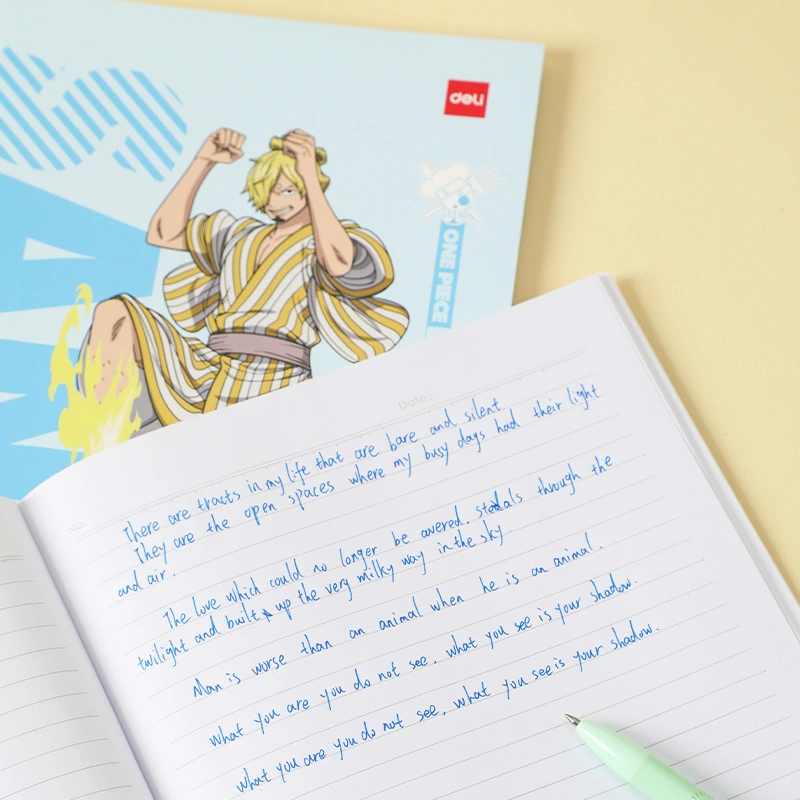 deli
ONE PIECE
Date:
No:
There are tracts in my life that are bare and silent
They are the open spaces where my busy days had their light
and air.
The love which could no longer be covered. steals through the
twilight and built up the very milky way in the sky.
Man is worse than an animal when he is an animal.
What you are you do not see, what you see is your shadow.
What you are you do not see, what you see is your shadow.